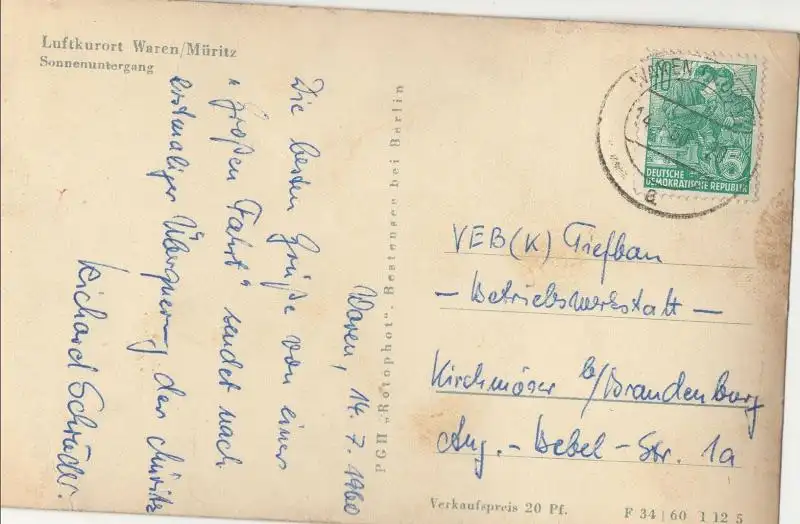 Luftkurort Waren/Müritz
Sonnenuntergang
Waren, 14.7.1960
Die besten Grüße von einer
"Großen Fahrt" sendet nach
erstmaliger Überquerung der Müritz
Richard Schröder.
PGH „Rotophot“, Bestensee bei Berlin
WAREN
10
5
DEUTSCHE
DEMOKRATISCHE REPUBLIK
a
VEB (K) Tiefbau
- Betriebswerkstatt -
Kirchmöser b/Brandenburg
Aug.-Bebel-Str. 1a
Verkaufspreis 20 Pf.
F 34 | 60 1 12 5